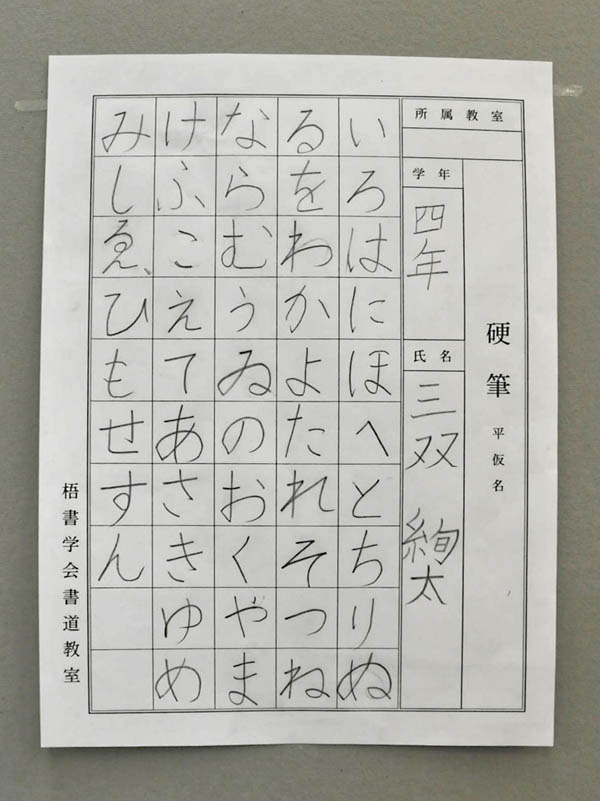 硬筆 平仮名
所属教室
学年
四年
氏名
三双 絢太
いろはにほへとちりぬ
るをわかよたれそつね
ならむうゐのおくやま
けふこえてあさきゆめ
みしゑひもせすん
梧書学会書道教室